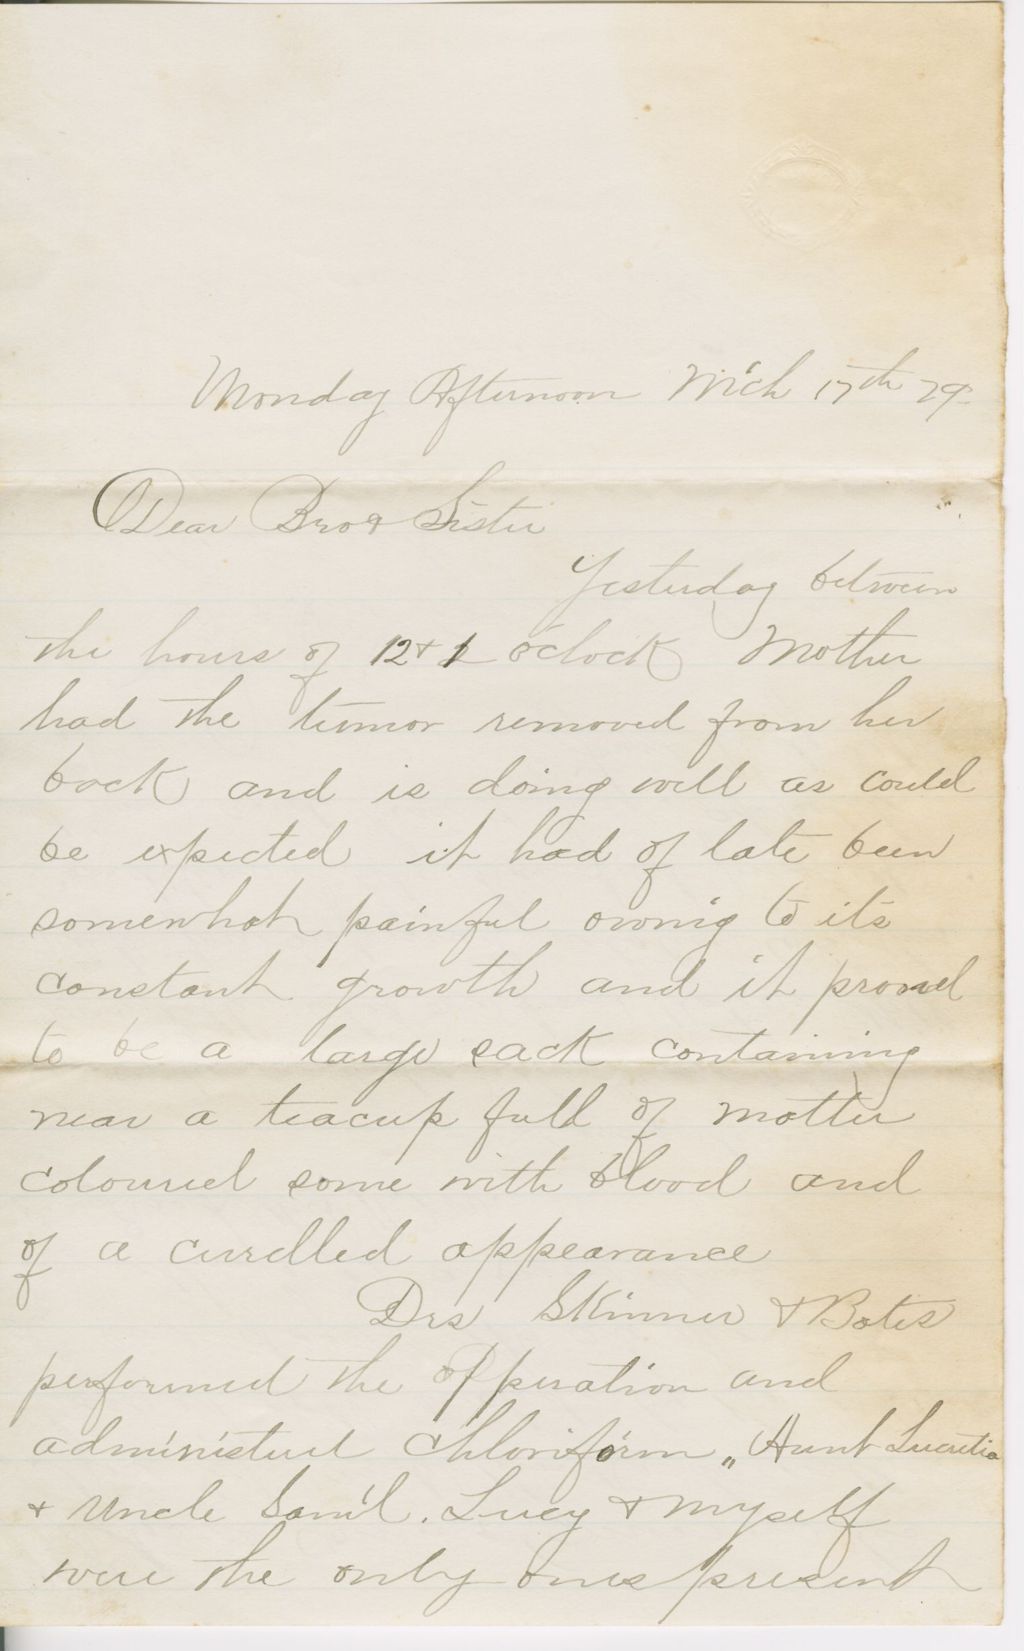 Monday Afternoon Mch 17th 79.
Dear Bro & Sister
Yesterday between
the hours of 12 & 1 oclock Mother
had the tumor removed from her
back and is doing well as could
be expected it had of late been
somewhat painful owing to its
constant growth and it proved
to be a large sack containing
near a teacup full of matter
coloured some with blood and
of a curdled appearance
Drs Skinner & Bates
performed the opperation and
administued Chloriform „ Aunt Lucretia
& Uncle Sam'l. Lucy & myself
were the only ones present